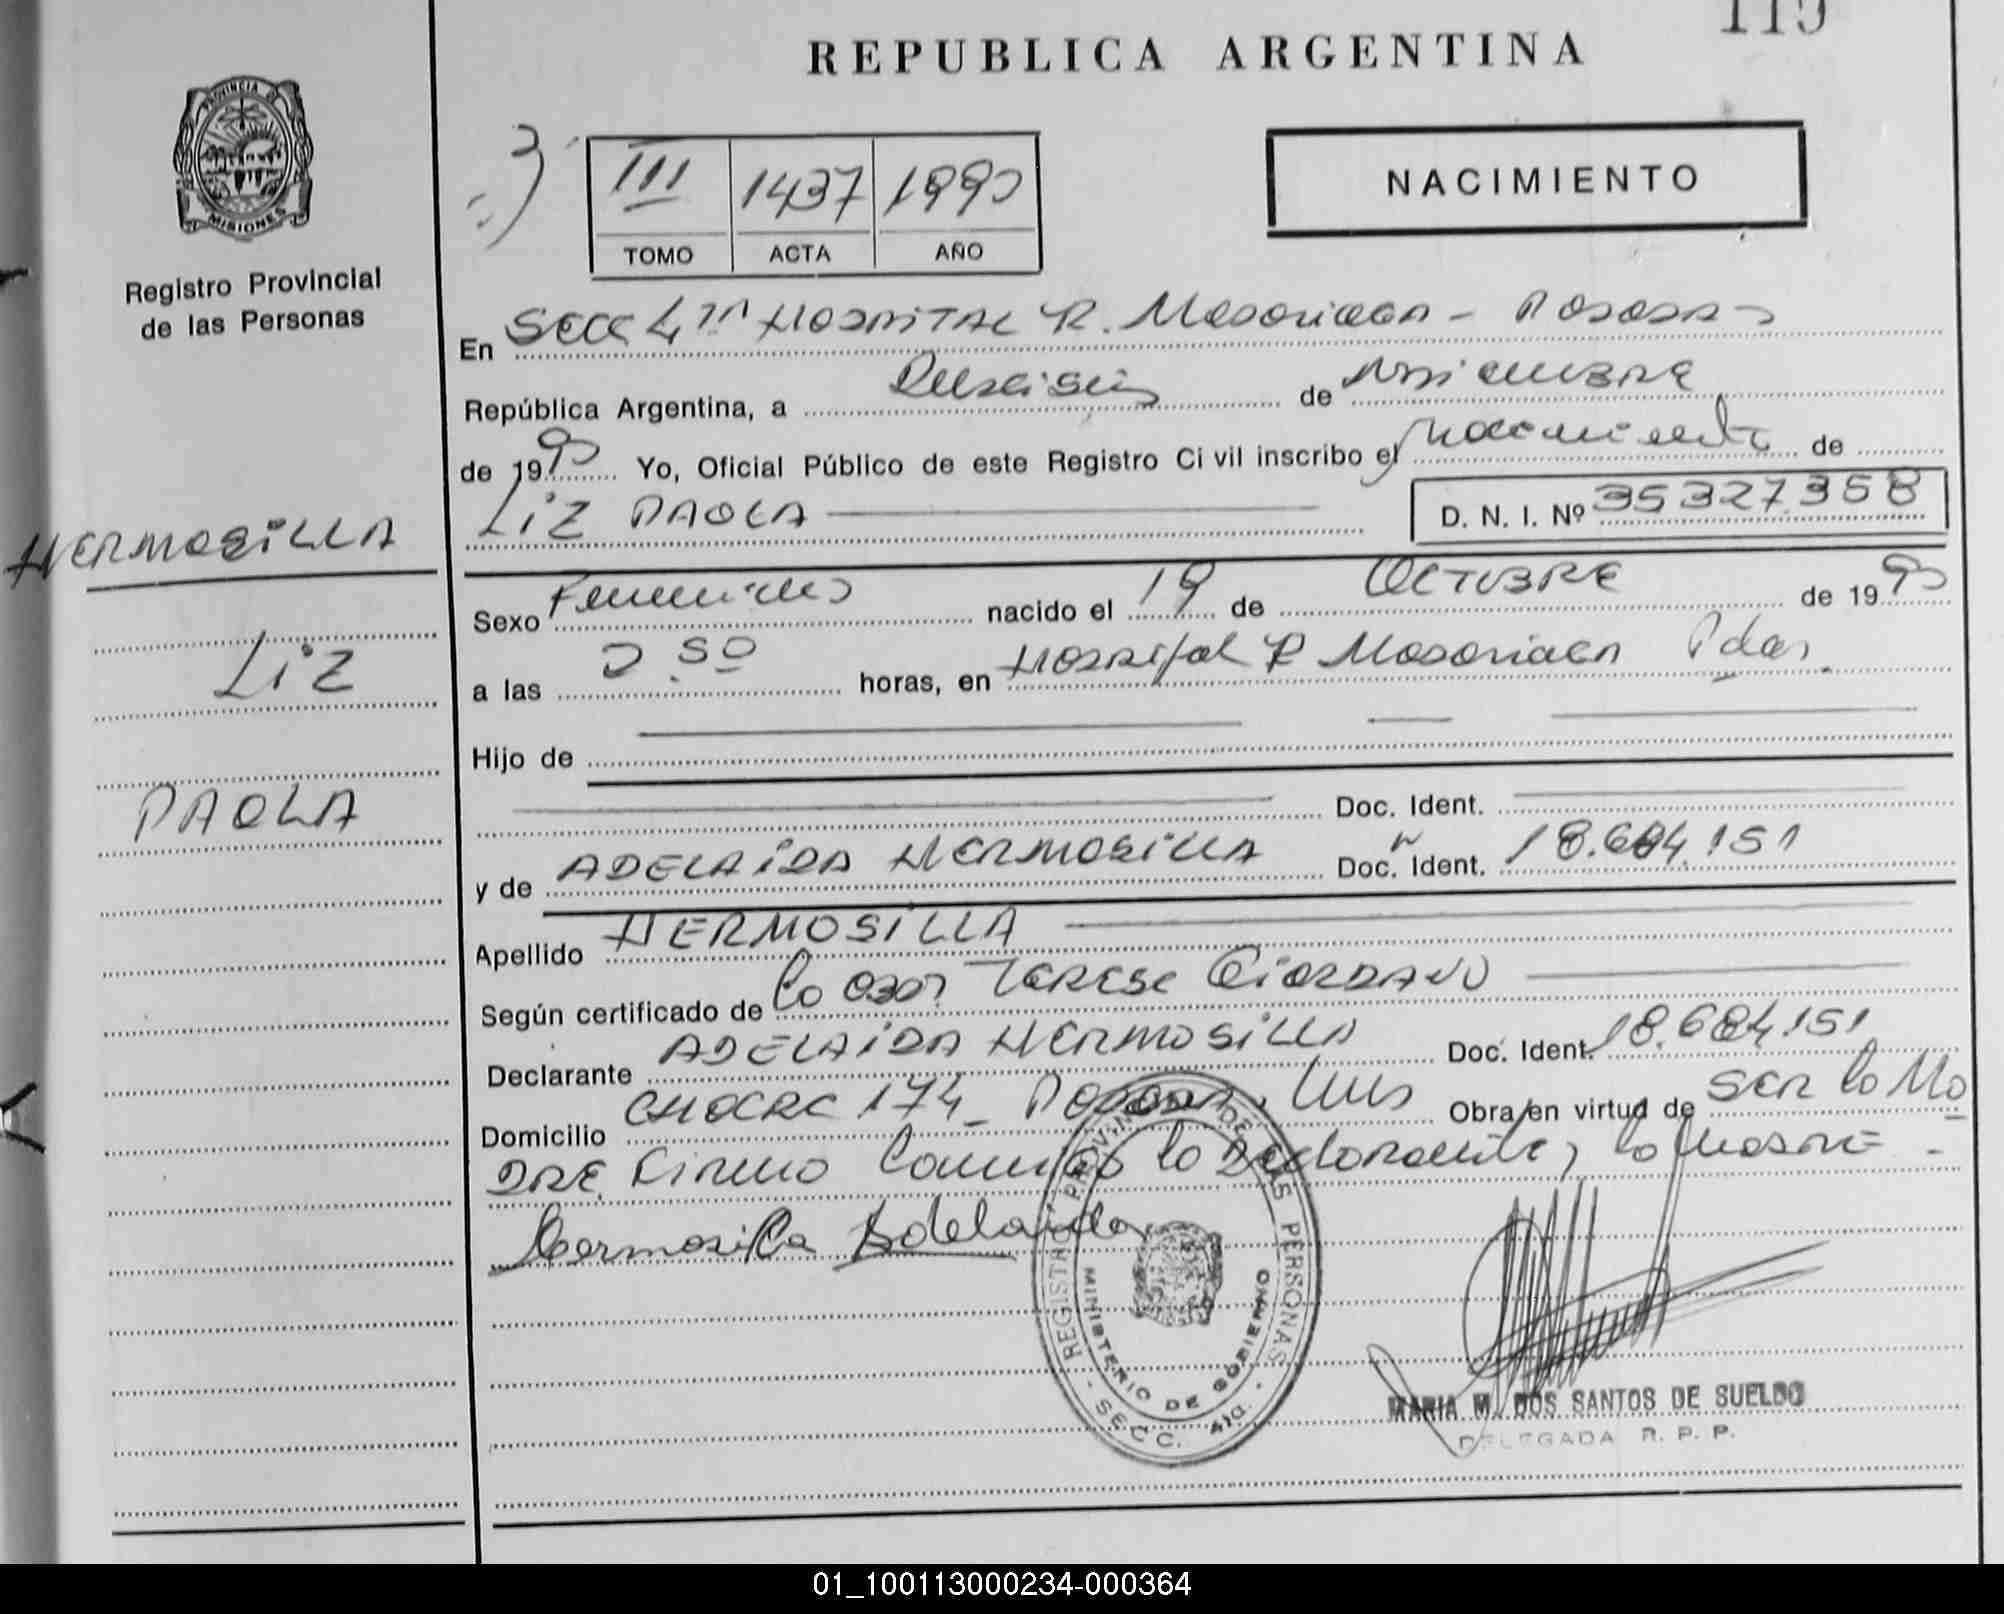 119
REPUBLICA ARGENTINA
PROVINCIA DE MISIONES
Registro Provincial
de las Personas
III 1437 1990
TOMO ACTA AÑO
NACIMIENTO
En Secc 4ta HOSPITAL R. Madariaga - POSADAS
República Argentina, a Dieciseis de Noviembre
de 1990 Yo, Oficial Público de este Registro Civil inscribo el Nacimiento de
LIZ PAOLA
D. N. I. Nº 35327.358
HERMOSILLA
LIZ
PAOLA
Sexo Femenino nacido el 19 de OCTUBRE de 1990
a las 2.50 horas, en Hospital R Madariaga Pdas.
Hijo de
Doc. Ident.
y de ADELAIDA HERMOSILLA Doc. Ident. 18.684.151
Apellido HERMOSILLA
Según certificado de la Teresa Giordano
Declarante ADELAIDA HERMOSILLA Doc. Ident. 18.684.151
Domicilio 174 - Posadas, Mns Obra en virtud de Ser la Ma
DRE. Firma Conmigo la Declarante, la Madre -
Hermosilla Adelaida
REGISTRO PROVINCIAL DE LAS PERSONAS
MINISTERIO DE GOBIERNO
- SECC. 4ta. -
MARIA M. DOS SANTOS DE SUELDO
DELEGADA R. P. P.
01_100113000234-000364